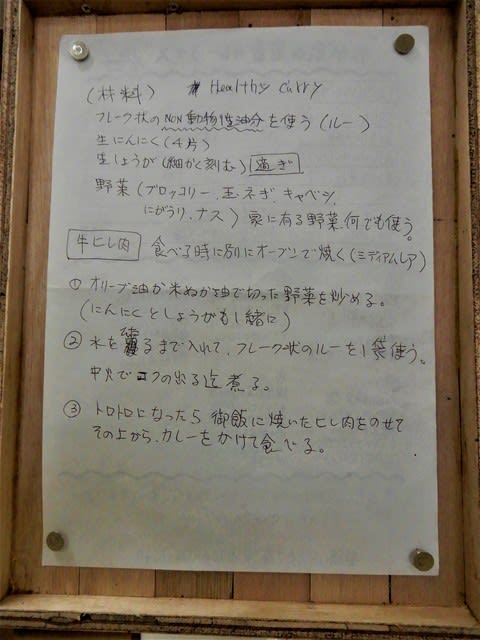 Healthy curry
(材料)
フレーク状のNON動物性油分を使う(ルー)
生にんにく(4片)
生しょうが(細かく刻む)
野菜(ブロッコリー、玉ネギ、キャベツ、
にがうり、ナス)家に有る野菜、何でも使う。
牛ヒレ肉 食べる時に別にオーブンで焼く(ミディアムレア)
① オリーブ油か米ぬか油で切った野菜を炒める。
(にんにくとしょうがも1緒に)
② 水を るまで入れて、フレーク状のルーを1袋使う。
中火でコクの出る迄煮る。
③ トロトロになったら御飯に焼いたヒレ肉をのせて
その上から、カレーをかけて食べる。